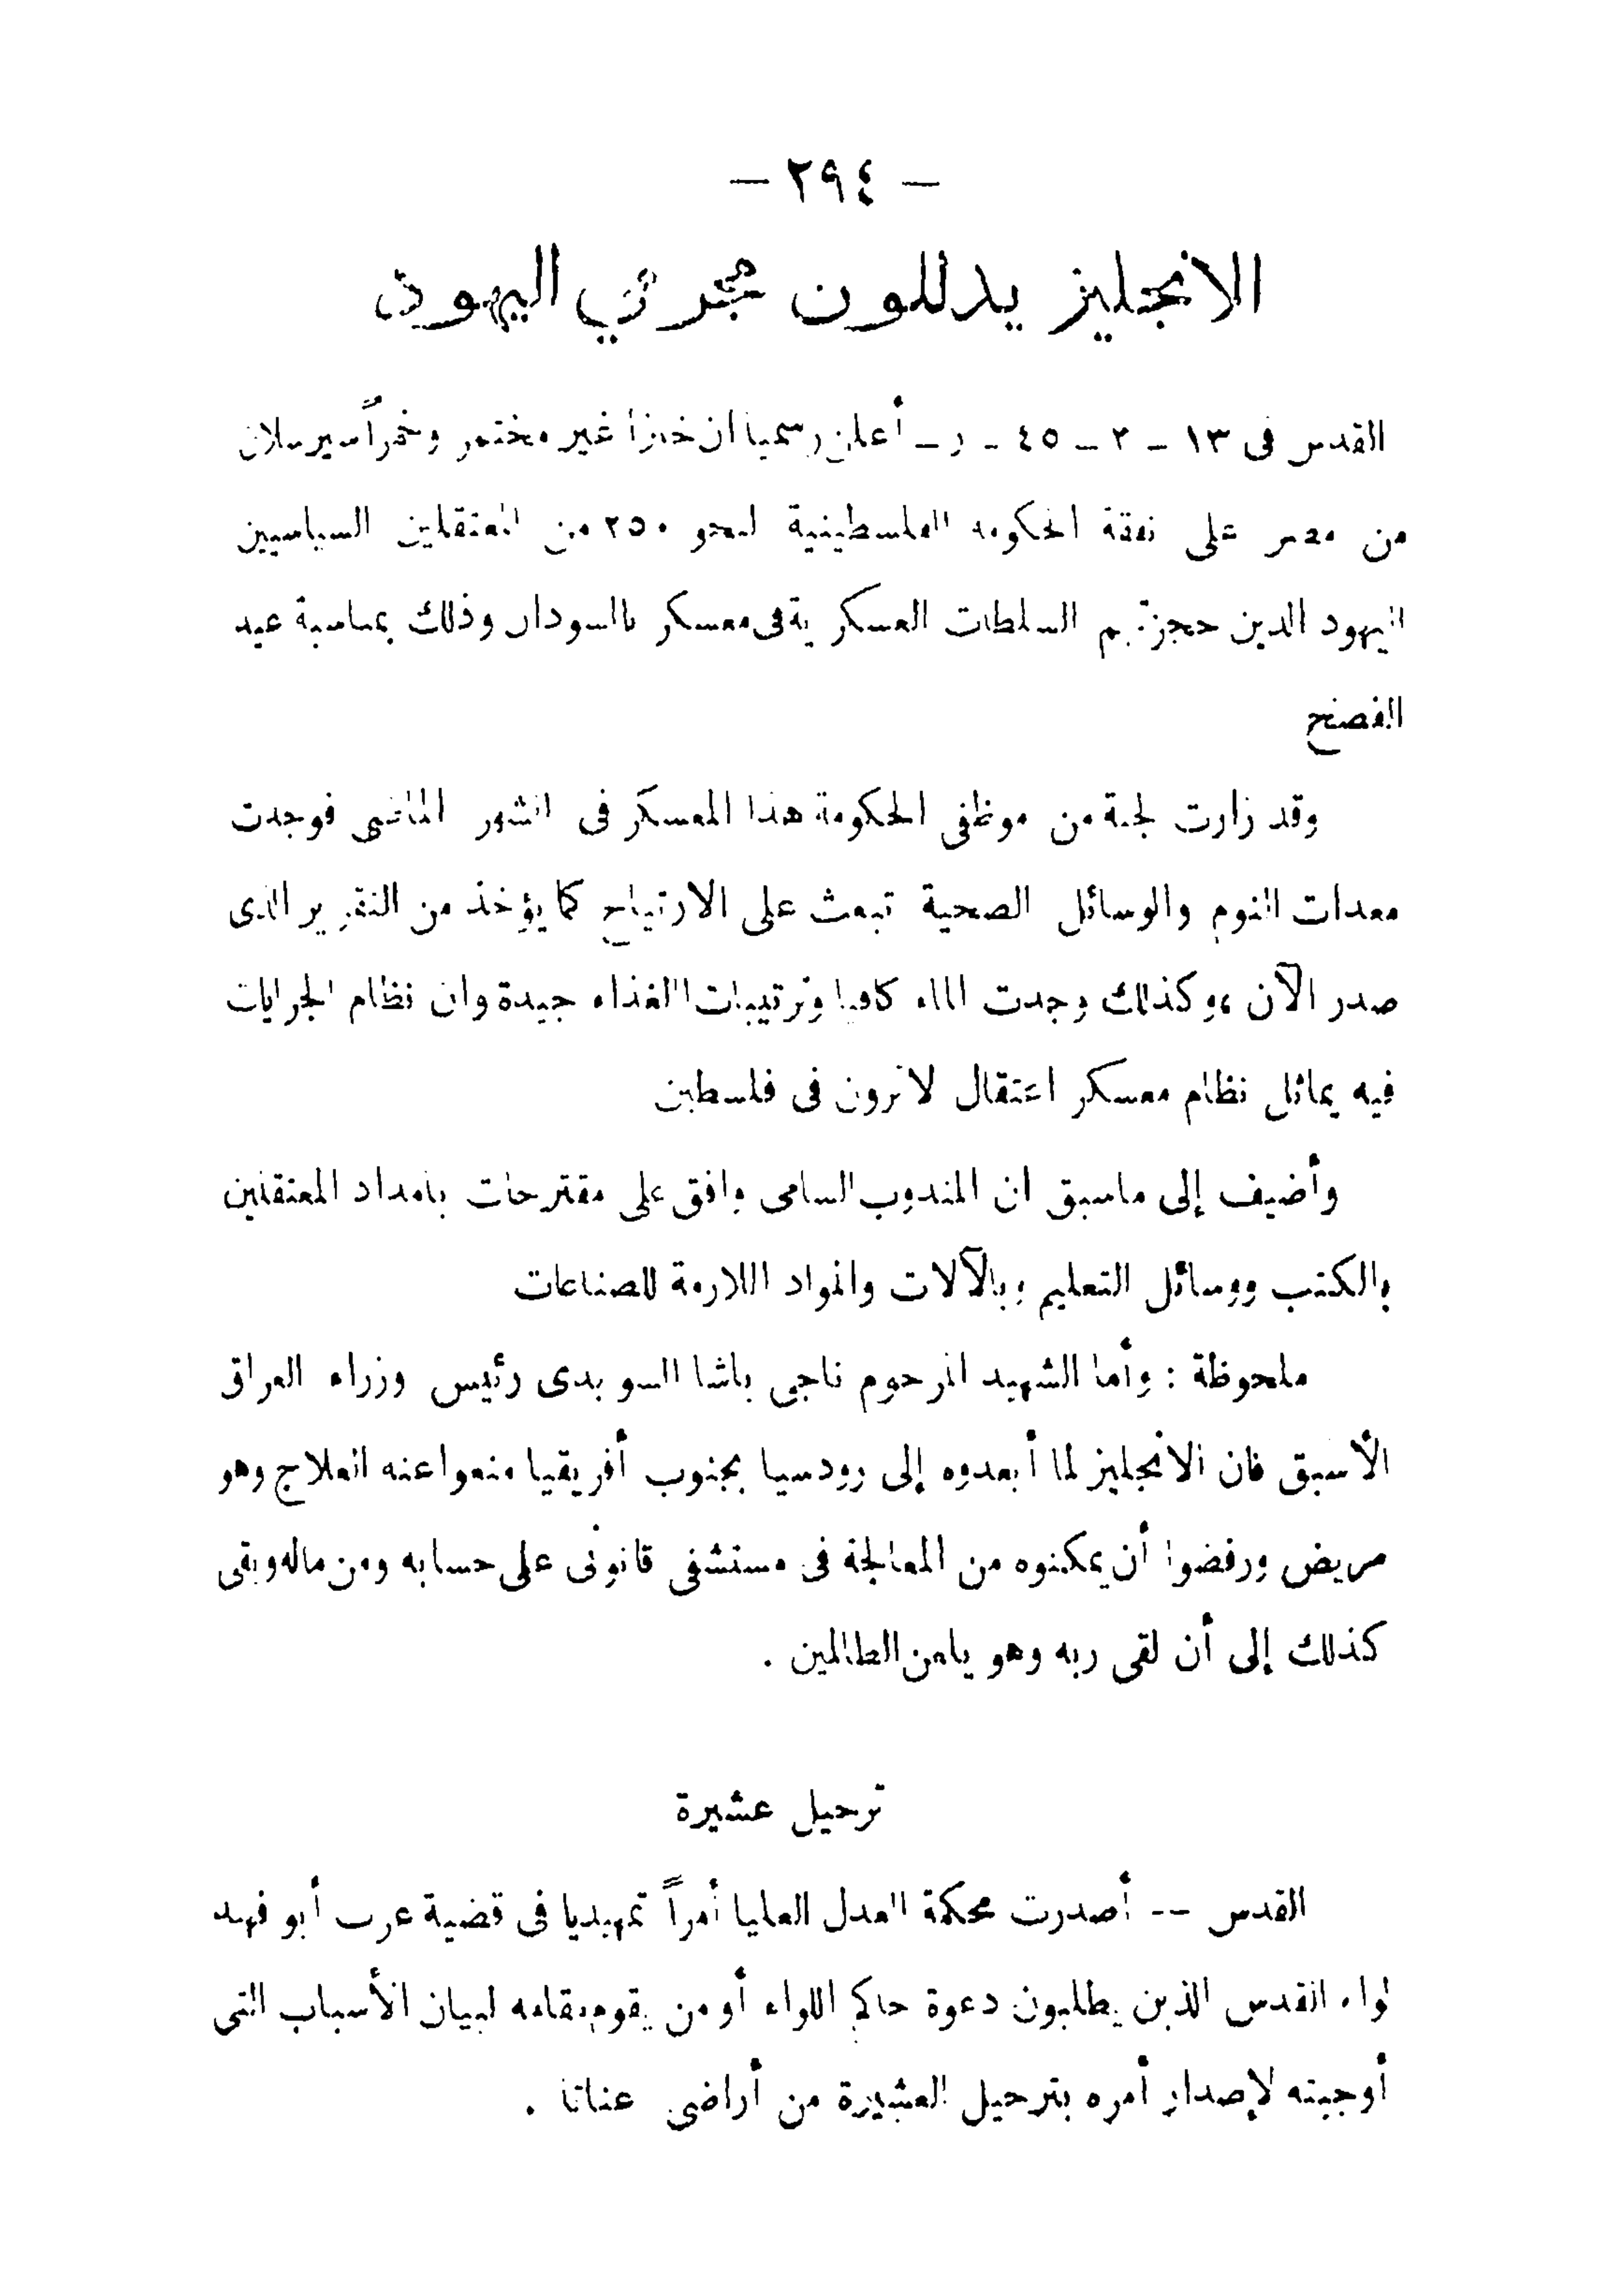 — ٢٩٤ —
الانجليز يدللون مجرمي اليهود
القدس فى ١٣ - ٢ - ٤٥ - ر - أعلن رسميا ان خبزا غير مختمر وخمراً سيرسلان
من مصر على نفقة الحكومة الفلسطينية لنحو ٢٥٠ من المعتقلين السياسيين
اليهود الذين حجزتهم السلطات العسكرية فى معسكر بالسودان وذلك بمناسبة عيد
الفصح
وقد زارت لجنة من موظفى الحكومة هذا المعسكر فى الشهر الماضى فوجدت
معدات النوم والوسائل الصحية تبعث على الارتياح كما يؤخذ من التقرير الذى
صدر الآن ،وكذلك وجدت الماء كافيا وترتيبات الغذاء جيدة وان نظام الجرايات
فيه يماثل نظام معسكر اعتقال لاترون فى فلسطين
وأضيف إلى ماسبق ان المندوب السامى وافق على مقترحات بامداد المعتقلين
بالكتب ووسائل التعليم وبالآلات والمواد اللازمة للصناعات
ملحوظة : وأما الشهيد المرحوم ناجى باشا السويدى رئيس وزراء العراق
الأسبق فان الانجليز لما أبعدوه إلى رودسيا بجنوب أفريقيا منعوا عنه العلاج وهو
مريض ورفضوا أن يمكنوه من المعالجة فى مستشفى قانونى على حسابه ومن ماله وبقى
كذلك إلى أن لقى ربه وهو يلعن الظالمين .
ترحيل عشيرة
القدس -- أصدرت محكمة العدل العليا أمراً تمهيديا فى قضية عرب أبو فهد
لواء القدس الذين يطلبون دعوة حاكم اللواء أو من يقوم مقامه لبيان الأسباب التى
أوجبته لإصدار أمره بترحيل العشيرة من أراضى عناتا .